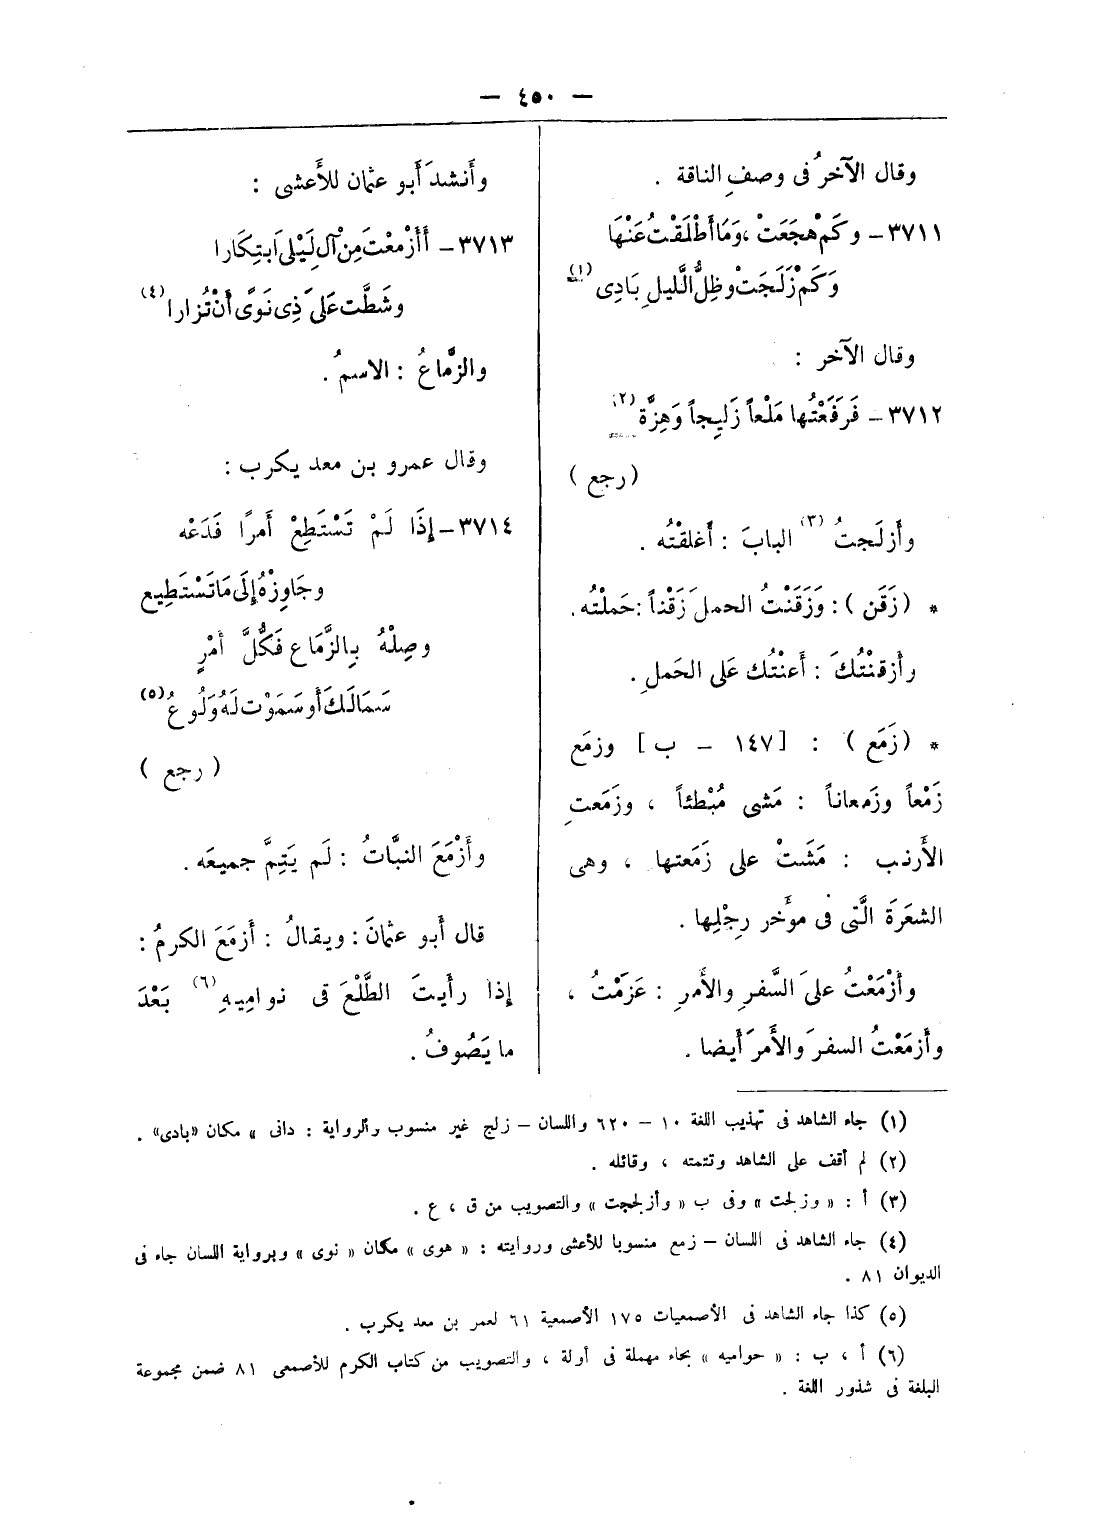 — ٤٥٠ —
وقال الآخرُ فى وصفِ الناقة .
٣٧١١ – وكَمْ هجَعَتْ ، وَمَا أَطْلَقْتُ عَنْهَا
وَكَمْ زَلَجَتْ وظِلُّ الَّليلِ بَادِى (١)
وقال الآخر :
٣٧١٢ – فَرَفَعْتُها مَلْعاً زَلِيجاً وَهِزَّة (٢)
( رجع )
وأَزلَجتُ (٣) البابَ : أَغلقْتُه .
* ( زَقَن ) : وَزَقَنْتُ الحملَ زَقْناً : حَملْتُه .
وأَزقنْتُكَ : أَعنْتُك عَلى الحَملِ .
* ( زَمَع ) : [ ١٤٧ – ب ] وزمَع
زَمْعاً وزَمعاناً : مَشى مُبْطئاً ، وزَمَعتِ
الأَرنب : مَشَتْ على زَمَعتها ، وهى
الشعَرَة الَّتى فى مؤَخر رِجْلِها .
وأَزْمَعْتُ علىَ السَّفرِ والأَمرِ : عَزَمْتُ ،
وأَزمَعْتُ السفرَ والأَمرَ أَيضا .
وأَنشدَ أَبو عثمان للأَعشى :
٣٧١٣ – أَأَزْمعْتَ مِنْ آلِ لَيْلى ابتِكارا
وشَطَّت عَلىَ ذِى نَوًى أَنْ تُزارا (٤)
والزَّماعُ : الاسمُ .
وقال عمرو بن معد يكرب :
٣٧١٤ – إِذَا لَمْ تَسْتَطِعْ أَمرًا فَدَعْه
وجَاوِزْهُ إِلَى مَا تَسْتَطِيع
وصِلْهُ بِالزَّمَاع فَكُلَّ أَمْرٍ
سَمَا لَكَ أَو سَمَوْت لَهُ وَلُوعُ (٥)
( رجع )
وأَزْمَعَ النبَّاتُ : لَم يَتِمَّ جميعَه .
قال أَبو عثمانَ : ويقالُ : أَزمَعَ الكرمُ :
إِذا رأَيتَ الطَّلْعَ فى نواميِهِ (٦) بَعْدَ
ما يَصُوفُ .
(١) جاء الشاهد فى تهذيب اللغة ١٠ – ٦٢٠ واللسان – زلج غير منسوب والرواية : دانى » مكان «بادى» .
(٢) لم أقف على الشاهد وتتمته ، وقائله .
(٣) أ : « وزلجت » وفى ب « وأزلجت » والتصويب من ق ، ع .
(٤) جاء الشاهد فى اللسان – زمع منسوبا للأعشى وروايته : « هوى » مكان « نوى » وبرواية اللسان جاء فى
الديوان ٨١ .
(٥) كذا جاء الشاهد فى الأصمعيات ١٧٥ الأصمعية ٦١ لعمر بن معد يكرب .
(٦) أ ، ب : « حواميه » بحاء مهملة فى أولة ، والتصويب من كتاب الكرم للأصمعى ٨١ ضمن مجموعة
البلغة فى شذور اللغة .